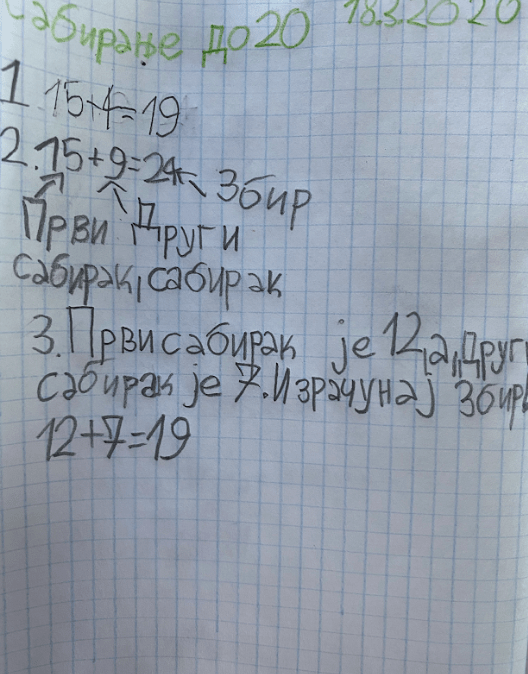 Сабирање до 20 18.3.2020
1. 15+4=19
2. 15+9=24 Збир
Први Други
сабирак, сабирак
3. Први сабирак је 12, а, Други
сабирак је 7. Израчунај збир
12+7=19